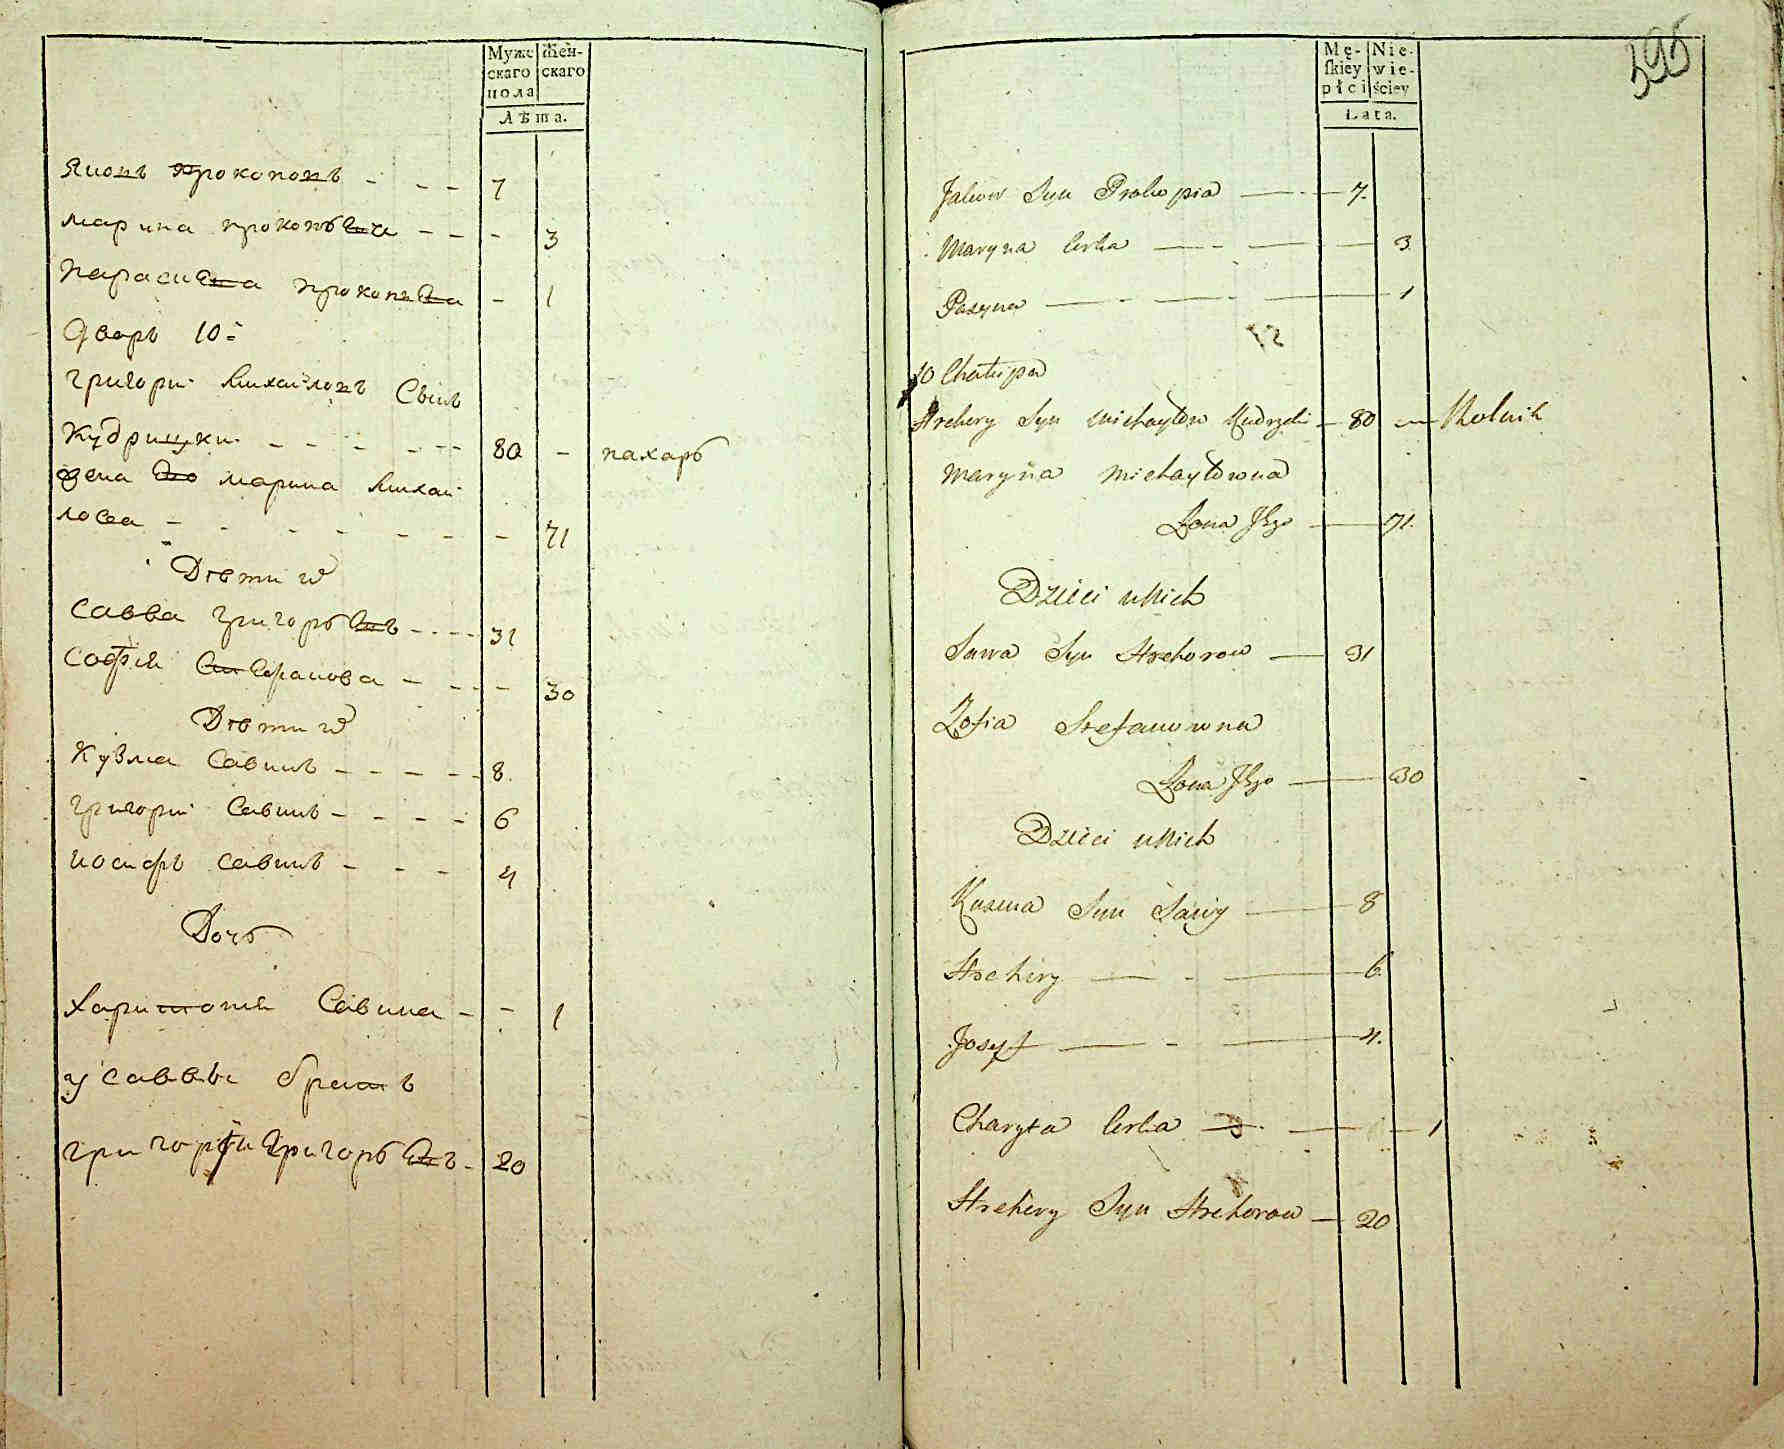 Муже Жен-
скаго скаго
пола
Лѣта.
Яковъ Прокоповъ - - - 7
Марина Прокопьева - - - 3
Парасиева Прокопьева - 1
Дворъ 10й
Григори Михайловъ Сынъ
Кудрицки - - - - - 80 - пахарь
жена Его Марина Михай
лова - - - - - - - 71
Дѣти их
Савва Григорьевъ - - - - 31
Софія Стефанова - - - - 30
Дѣти их
Кузма Савинъ - - - - - 8
Григори Савинъ - - - - 6
Иосифъ Савинъ - - - 4
Дочь
Харитония Савина - - 1
у Саввы братъ
Григорѣи Григорьевъ - 20
395
Mę- Nie-
ſkiey wie-
płci ściey
Lata.
Jakow Syn Prokopia 7.
Maryna Corka 3
Parsyna 1
12
10 Chałupa
Hrehory Syn Michayłow Kudrycki 80 Rolnik
Maryna Michayłowna
Zona Jego 71.
Dzieci u Nich
Sawa Syn Hrehorow 31
Zofia Stefanowna
Zona Jego 30
Dzieci u Nich
Kuzma Syn Sawy 8
Hrehory 6.
Josyf 4.
Charyta Corka 1
Hrehory Syn Hrehorow 20